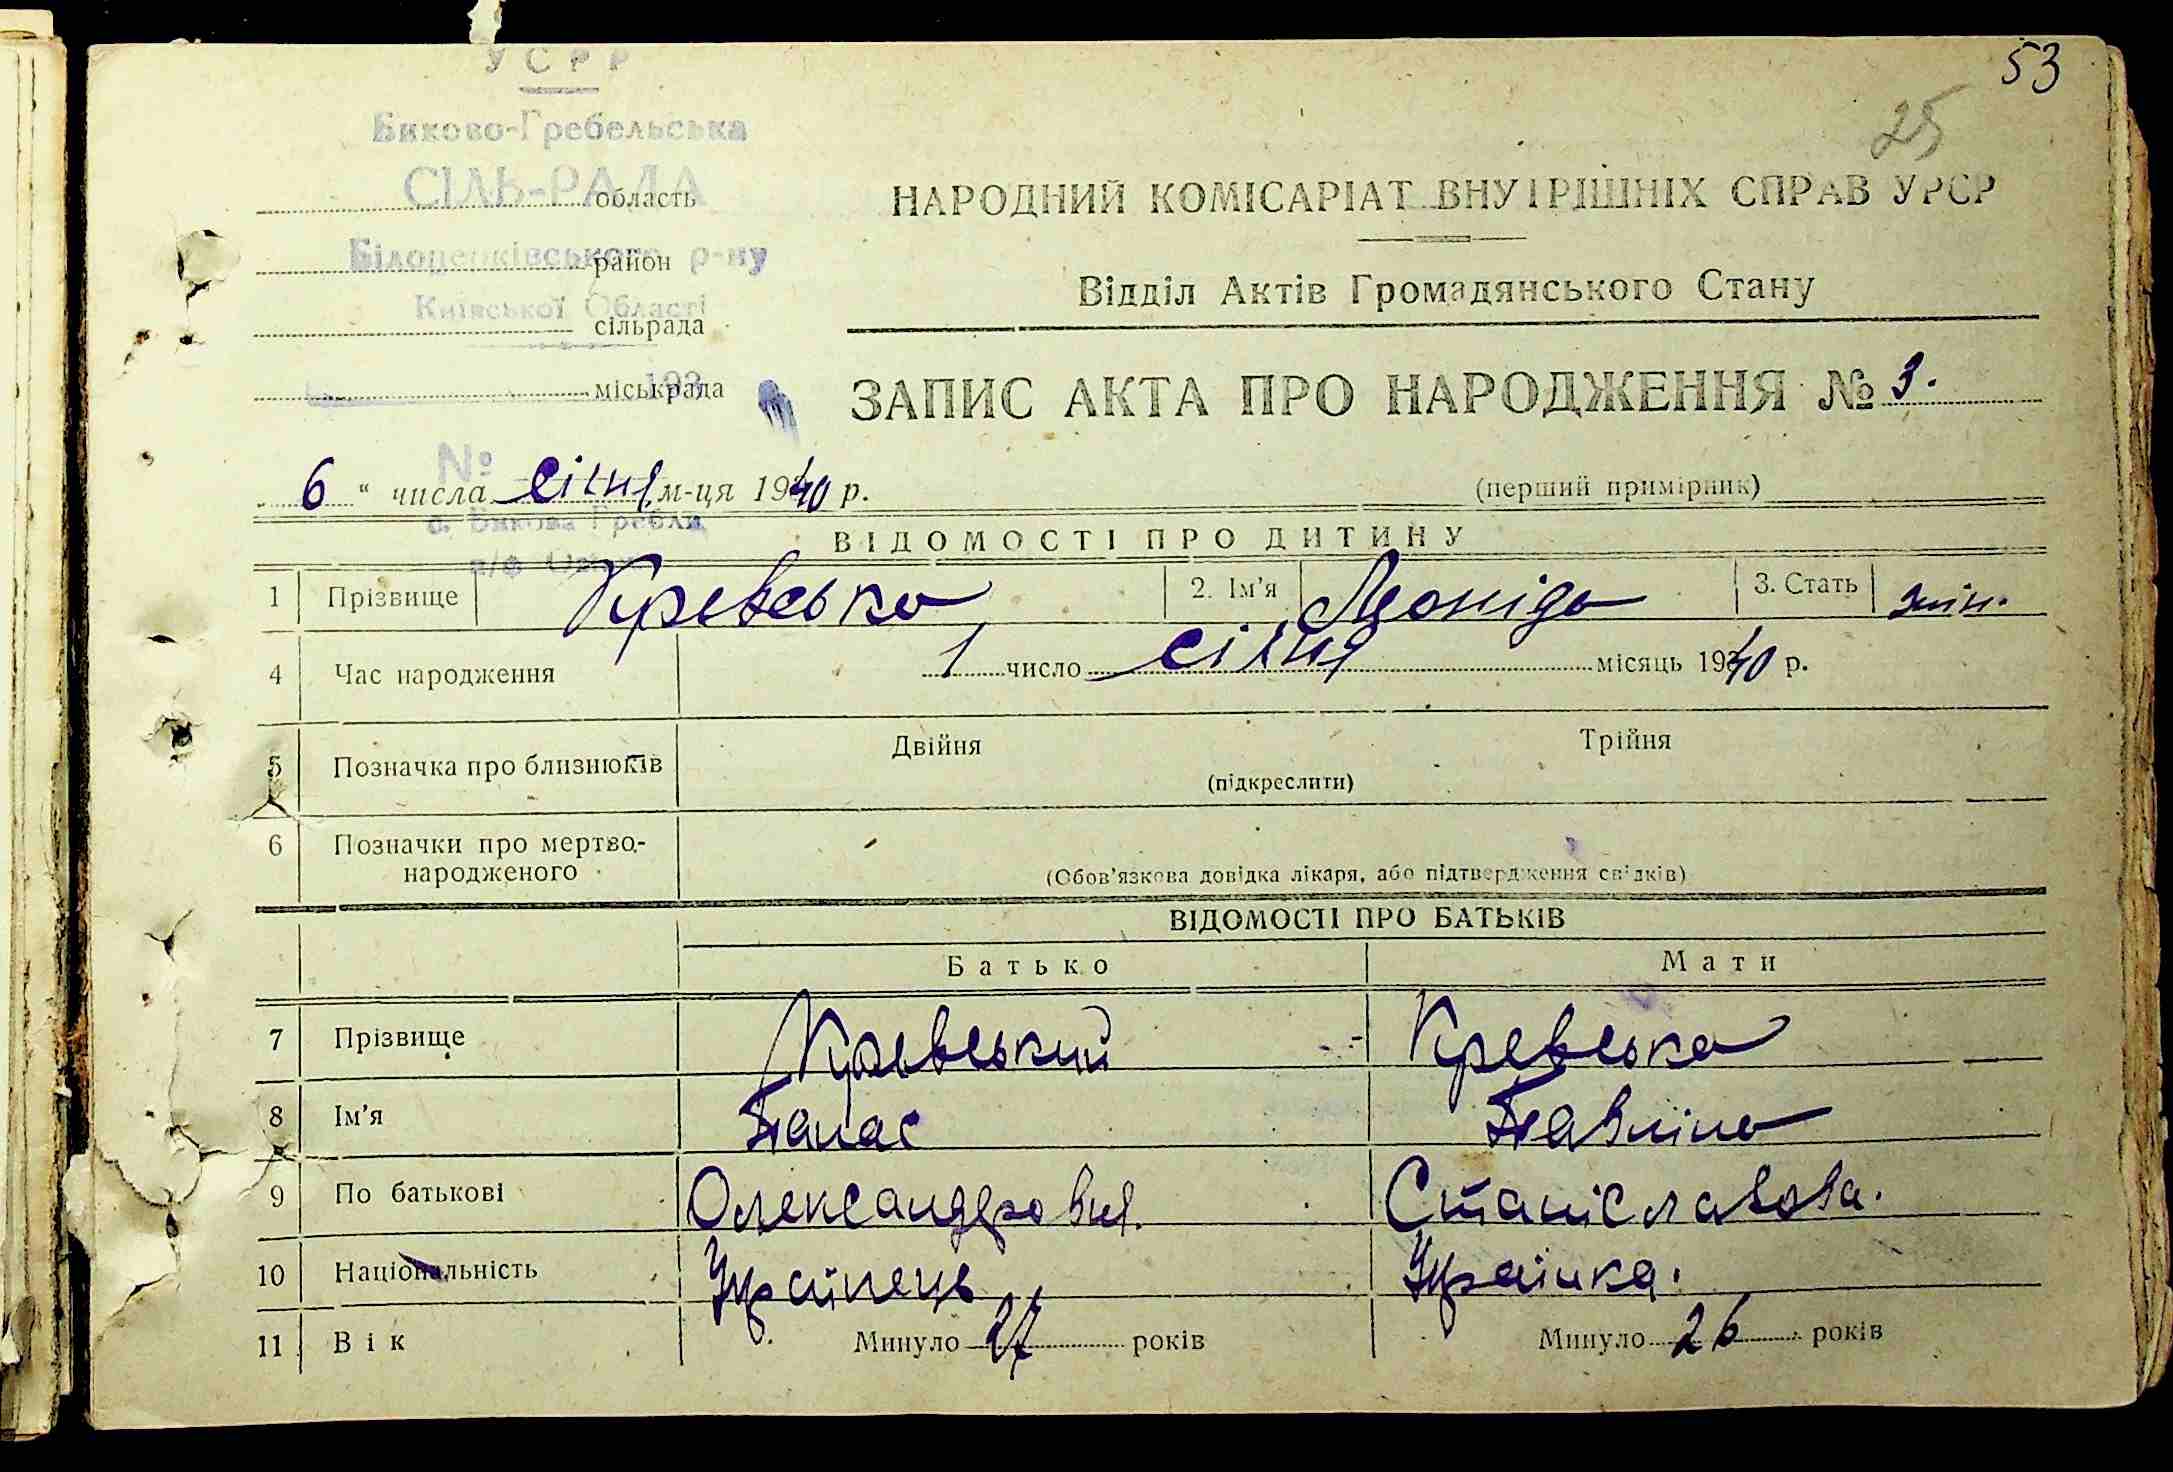 53
25
УСРР
Биково-Гребельська
СІЛЬ-РАДА
область
Білоцерківського р-ну
район
Київської Області
сільрада
193
міськрада
№
с. Бикова Гребля
п/в
НАРОДНИЙ КОМІСАРІАТ ВНУТРІШНІХ СПРАВ УРСР
Відділ Актів Громадянського Стану
ЗАПИС АКТА ПРО НАРОДЖЕННЯ № 3.
6 “ числа січня м-ця 1940 р.
(перший примірник)
ВІДОМОСТІ ПРО ДИТИНУ
1 Прізвище Кревська 2. Ім’я Леоніда 3. Стать жін.
4 Час народження 1 число січня місяць 1940 р.
5 Позначка про близнюків Двійня Трійня
(підкреслити)
6 Позначки про мертво-
народженого
(Обов’язкова довідка лікаря, або підтвердження свідків)
ВІДОМОСТІ ПРО БАТЬКІВ
Батько Мати
7 Прізвище Кревський Кревська
8 Ім’я Панас Павліна
9 По батькові Олександрович. Станіславова.
10 Національність Українець Українка.
11 Вік Минуло 27 років Минуло 26 років